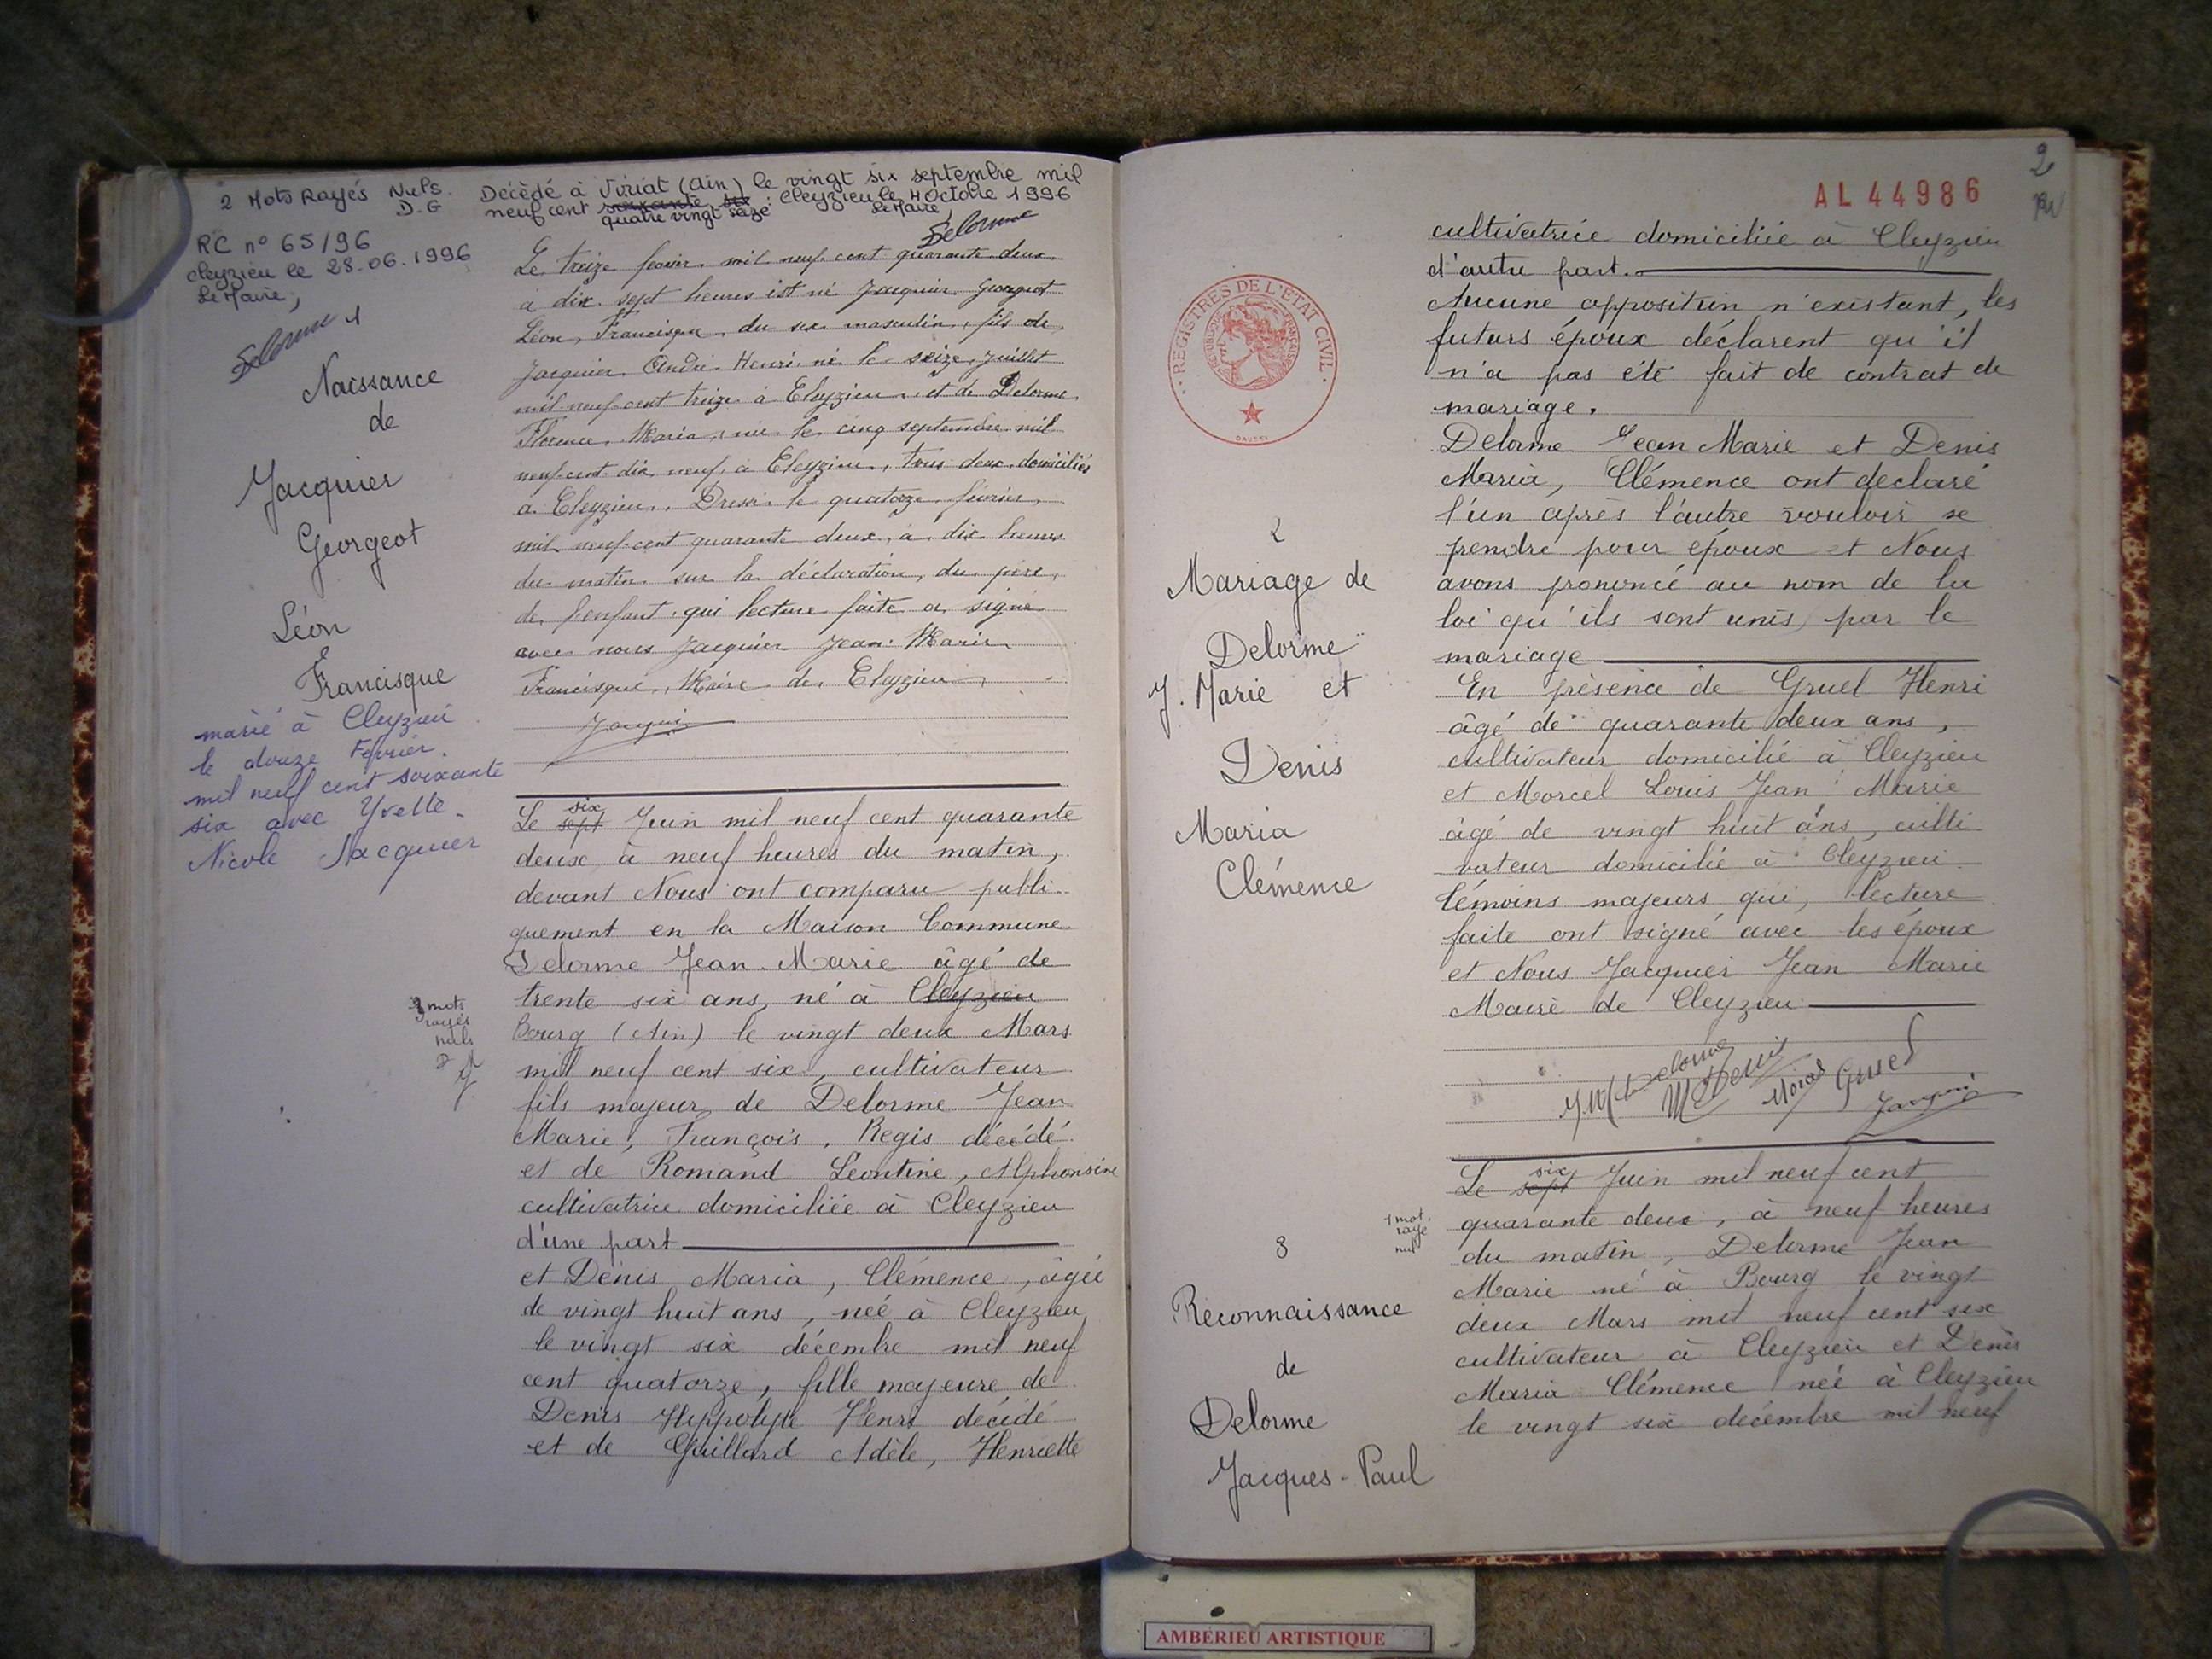 2 Mots Rayés Nuls.
D.G
Décédé à Viriat (Ain) le vingt six septembre mil
neuf cent soixante six : Cleyzieu le 4 Octobre 1996
quatre vingt seize
Le Maire,
Delorme
RC n° 65/96
Cleyzieu le 28.06.1996
Le Maire,
Delorme
Naissance
de
Jacquier
Georgeot
Léon
Francisque
marié à Cleyzieu
le douze Février
mil neuf cent soixante
six avec Yvette
Nicole Jacquier
Le treize fevier mil neuf cent quarante deux
à dix sept heures est né Jacquier Georgeot
Léon, Francisque, du sexe masculin, fils de
Jacquier André Henri né le seize Juillet
mil neuf cent treize à Cleyzieu et de Delorme
Florence, Maria, née le cinq septembre mil
neuf cent dix neuf à Cleyzieu, tous deux domiciliés
à Cleyzieu. Dressé le quatorze février,
mil neuf cent quarante deux, à dix heures
du matin sur la déclaration, du père,
de l'enfant qui lecture faite a signé
avec nous Jacquier Jean Marie
Francisque, Maire de Cleyzieu
Jacquier
six
Le sept Juin mil neuf cent quarante
deux à neuf heures du matin,
devant Nous ont comparu publi-
quement en la Maison Commune
Delorme Jean Marie âgé de
trente six ans, né à Cleyzieu
3 mots
rayés
nuls
Bourg (Ain) le vingt deux Mars
mil neuf cent six, cultivateur
fils majeur de Delorme Jean
Marie, François, Regis décédé
et de Romand Léontine, Alphonsine
cultivatrice domiciliée à Cleyzieu
d'une part
et Denis Maria, Clémence, âgée
de vingt huit ans, née à Cleyzieu
le vingt six décembre mil neuf
cent quatorze, fille majeure de
Denis Hippolyte Henri décédé
et de Gaillard Adèle, Henriette
2
AL 44986
REGISTRES DE L'ETAT CIVIL
REPUBLIQUE FRANÇAISE
2
Mariage de
Delorme
J. Marie et
Denis
Maria
Clémence
cultivatrice domiciliée à Cleyzieu
d'autre part.
Aucune opposition n'existant, les
futurs époux déclarent qu'il
n'a pas été fait de contrat de
mariage.
Delorme Jean Marie et Denis
Maria, Clémence ont declaré
l'un après l'autre vouloir se
prendre pour époux et Nous
avons prononcé au nom de la
loi qu'ils sont unis par le
mariage
En présence de Gruel Henri
âgé de quarante deux ans,
cultivateur domicilié à Cleyzieu
et Morcel Louis Jean Marie
âgé de vingt huit ans, culti
vateur domicilié à Cleyzieu
témoins majeurs qui, lecture
faite ont signé avec les époux
et Nous Jacquier Jean Marie
Maire de Cleyzieu
J.M Delorme M Denis Morcel Gruel
Jacquier
3
Reconnaissance
de
Delorme
Jacques-Paul
1 mot
rayé
nul
six
Le sept Juin mil neuf cent
quarante deux, à neuf heures
du matin, Delorme Jean
Marie né à Bourg le vingt
deux Mars mil neuf cent six
cultivateur à Cleyzieu et Denis
Maria Clémence née à Cleyzieu
le vingt six décembre mil neuf
AMBÉRIEU ARTISTIQUE